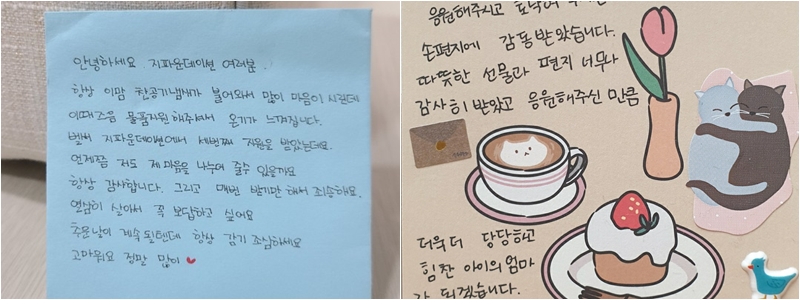 안녕하세요 지파운데이션 여러분.
항상 이맘 찬공기냄새가 불어와서 많이 마음이 시린데
이때즈음 물품지원해주셔서 온기가 느껴집니다.
벌써 지파운데이션에서 세번째 지원을 받았는데요.
언제쯤 저도 제 마음을 나누어 줄수 있을까요
항상 감사합니다. 그리고 매번 받기만 해서 죄송해요.
열심히 살아서 꼭 보답하고 싶어요
추운날이 계속 될텐데 항상 감기 조심하세요
고마워요 정말 많이
응원해주시고
손편지에 감동받았습니다.
따뜻한 선물과 편지 너무나
감사히 받았고 응원해주신 만큼
더욱 더 당당하고
힘찬 아이의 엄마
가 되겠습니다.